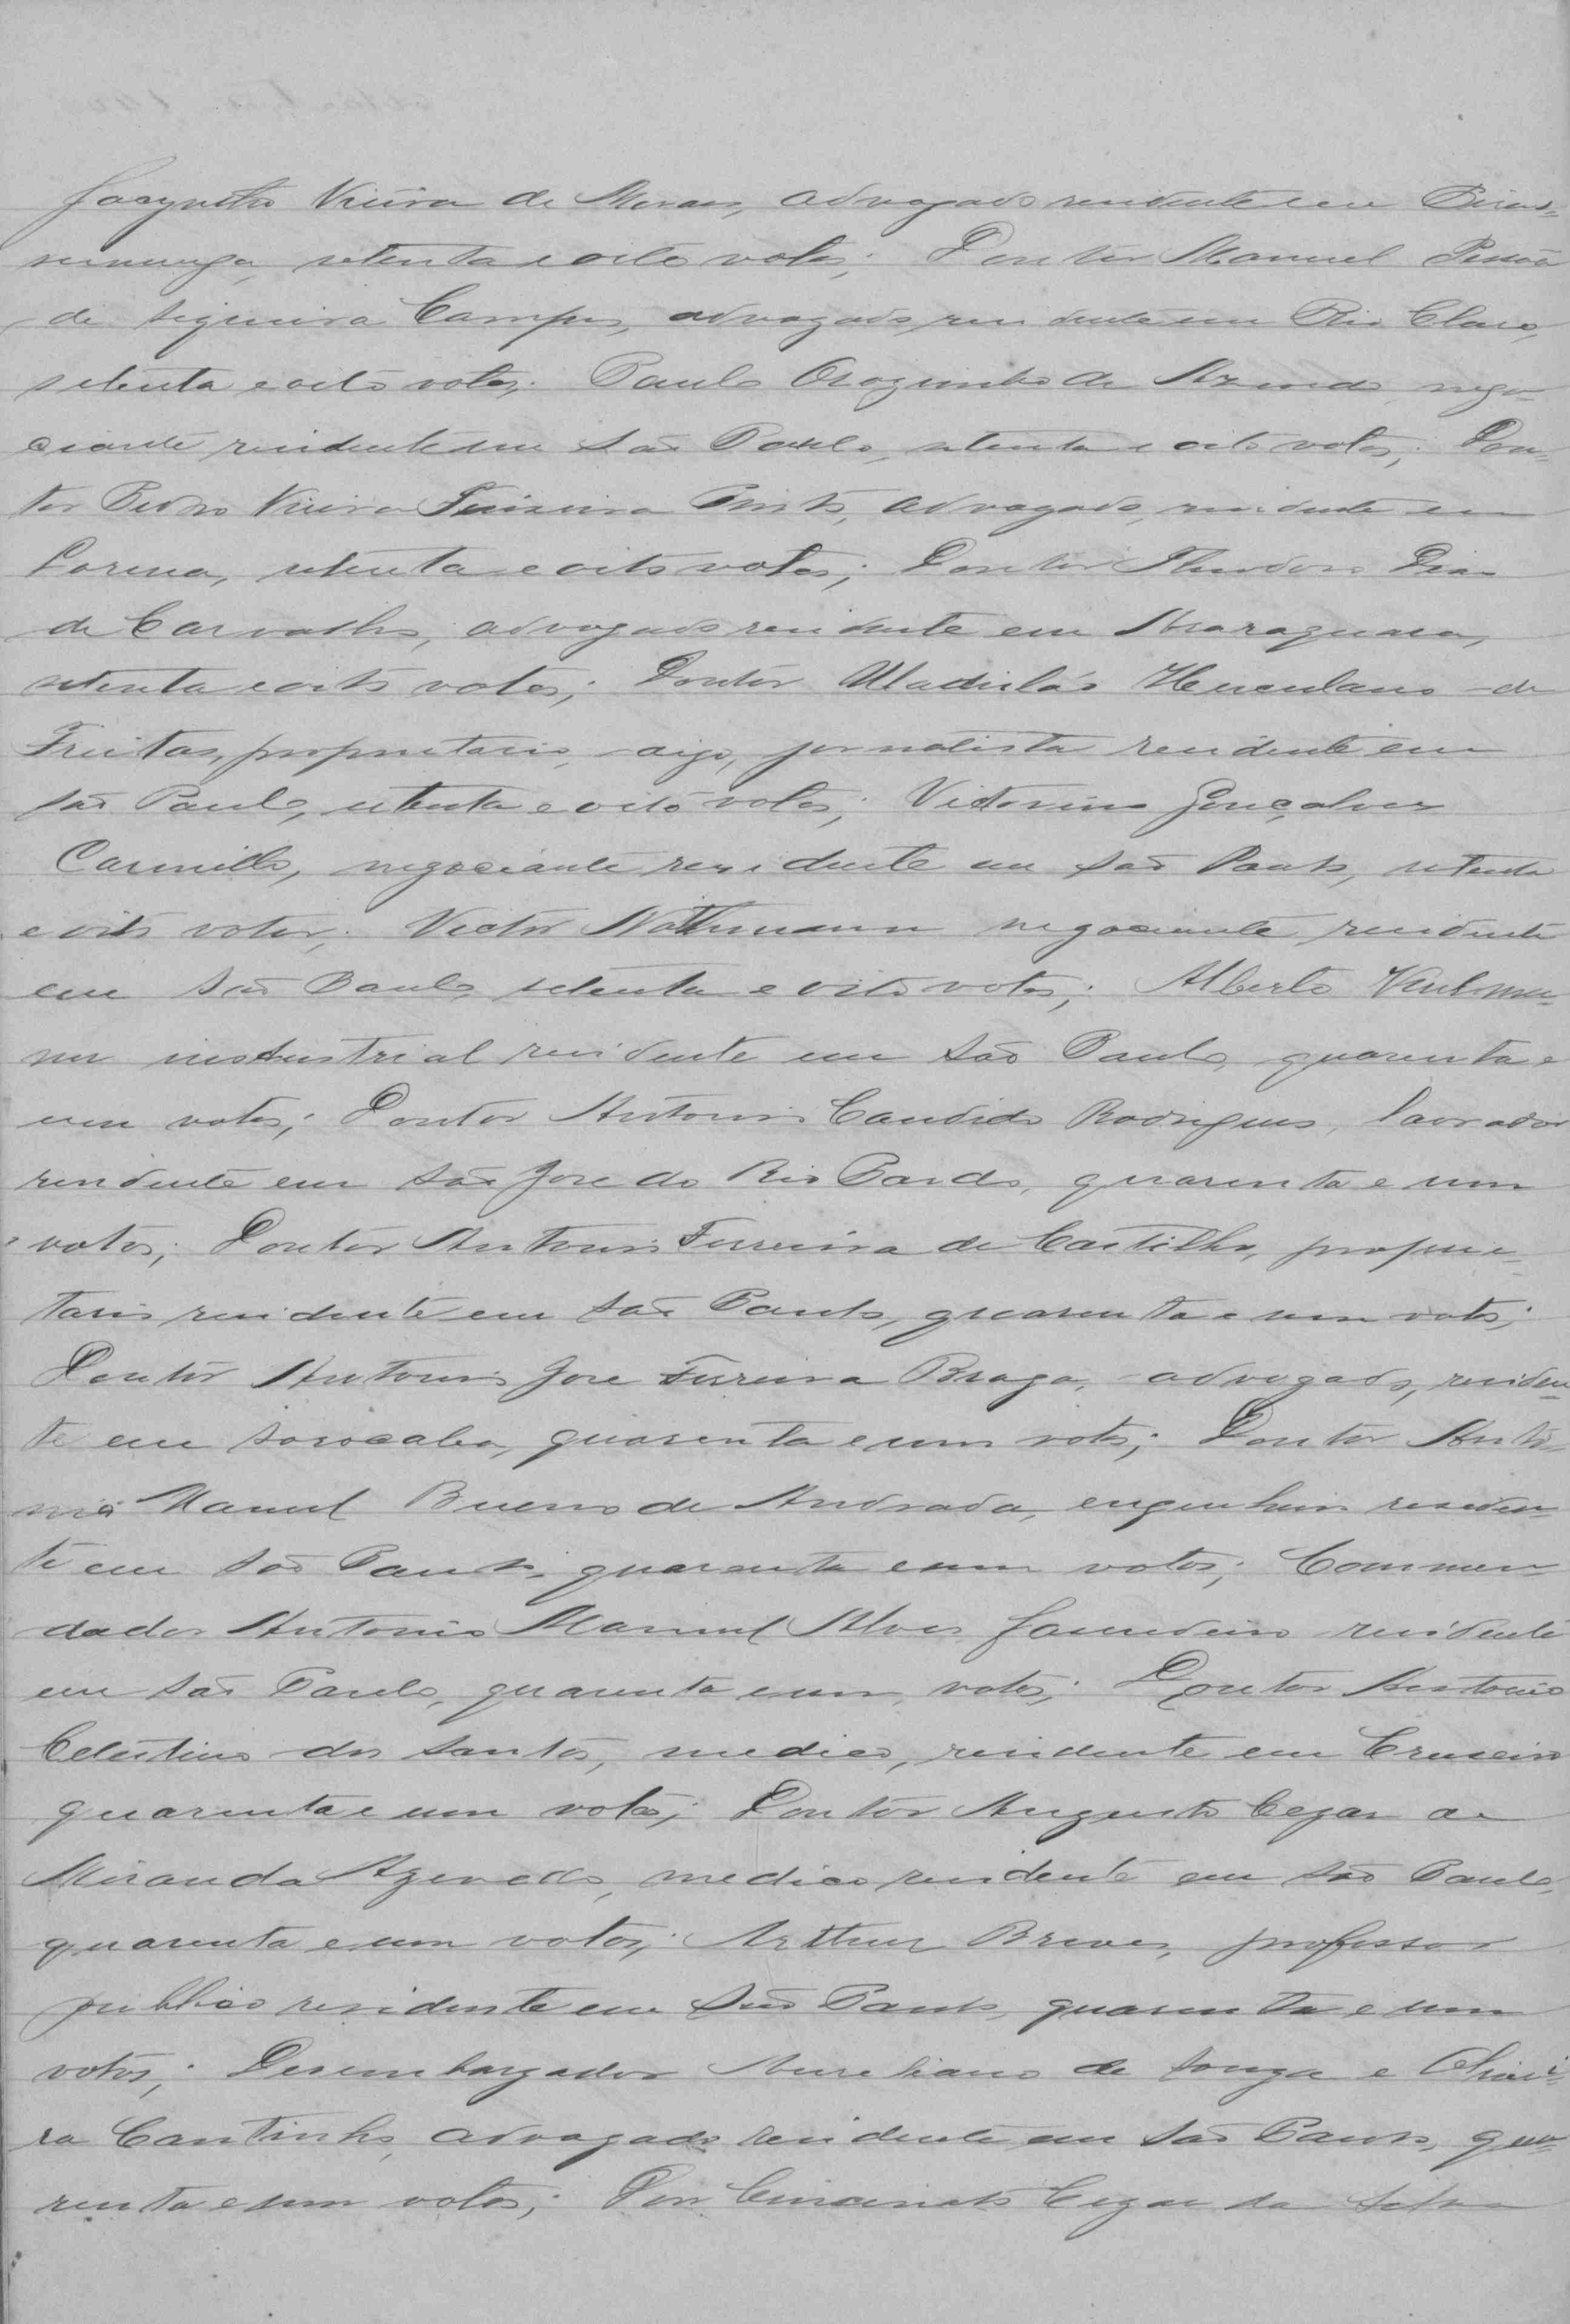 Jacyntho Vieira de Moraes, advogado residente em Piras-
sununga, setenta e oito votos; Doutor Manuel Pessôa
de Siqueira Campos, advogado, residente em Rio Claro,
setenta e oito votos; Paulo Orozimbo de Azevedo nego-
ciante residente em São Paulo, setenta e oito votos; Dou-
tor Pedro Vieira Teixeira Pinto, advogado, residente em
Lorena, setenta e oito votos; Doutor Theodoro Dias
de Carvalho, advogado residente em Araraquara,
setenta e oito votos; Doutor Uladislás Herculano de
Freitas, proprietario, digo, jornalista residente em
São Paulo, setenta e oito votos; Victorino Gonçalves
Carmillo, negociante residente em São Paulo, setenta
e oito votos; Victor Nothmann negociante, residente
em São Paulo, setenta e oito votos; Alberto
industrial residente em São Paulo, quarenta e
um votos; Doutor Antonio Candido Rodrigues, lavrador
residente em São José do Rio Pardo, quarenta e um
votos; Doutor Antonio Ferreira de Castilho, proprie-
tario residente em São Paulo, quarenta e um votos;
Doutor Antonio José Ferreira Braga, advogado, residen-
te em Sorocaba, quarenta e um votos; Doutor Anto-
nio Manuel Bueno de Andrada, engenheiro residen-
te em São Paulo, quarenta e um votos; Commen-
dador Antonio Manuel Alves fazendeiro residente
em São Paulo, quarenta e um, votos; Doutor Antonio
Celestino dos Santos, medico, residente em Cruzeiro
quarenta e um votos; Doutor Augusto Cezar de
Miranda Azevedo, medico residente em São Paulo,
quarenta e um votos; Arthur Breves, professor
publico residente em São Paulo, quarenta e um
votos; Desembargador Aureliano de Souza e Olivei-
ra Coutinho, advogado residente em São Paulo, qua-
renta e um votos; Dou Cincinato Cezar da Silva